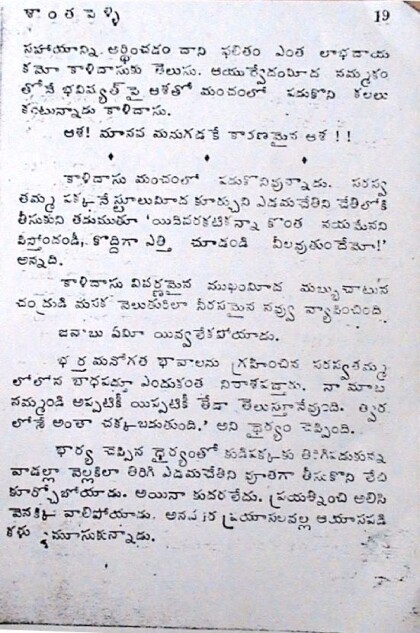 శాంత పెళ్ళి 19
సహాయాన్ని అర్థించడం దాని ఫలితం ఎంత లాభదాయ
కమో కాళిదాసుకు తెలుసు. ఆయుర్వేదంమీద నమ్మకం
తోనే భవిష్యత్ పై ఆశతో మంచంలో పడుకొని కలలు
కంటున్నాడు కాళిదాసు.
ఆశ! మానవ మనుగడకే కారణమైన ఆశ !!
కాళిదాసు మంచంలో పడుకొనివున్నాడు. సరస్వ
తమ్మ పక్కనే స్టూలుమీద కూర్చుని ఎడమచేతిని చేతిలోకి
తీసుకుని తడుముతూ 'యిదివరకటికన్నా కొంత నయమేనని
పిస్తోందండీ, కొద్దిగా ఎత్తి చూడండి వీలవుతుందేమో!'
అన్నది.
కాళిదాసు వివర్ణమైన ముఖంమీద మబ్బుచాటున
చంద్రుడి మసక వెలుతురులా నీరసమైన నవ్వు వ్యాపించింది
జవాబు ఏమీ యివ్వలేకపోయాడు.
భర్తమనోగత భావాలను గ్రహించిన సరస్వతమ్మ
లోలోన బాధపడ్తూ ఎందుకంత నిరాశపడ్తారు. నా మాట
నమ్మండి అప్పటికీ యిప్పటికీ తేడా తెలుస్తూనేవుంది. త్వర
లోనే అంతా చక్కబడుతుంది.' అని ధైర్యం చెప్పింది.
భార్య చెప్పిన ధైర్యంతో కుడిపక్కకు తిరిగిపడుకున్న
వాడల్లా వెల్లకిలా తిరిగి ఎడమచేతిని వూతగా తీసుకొని లేచి
కూర్చోబోయాడు. అయినా కుదరలేదు. ప్రయత్నించి అలసి
వెనక్కి వాలిపోయాడు. ప్రయాసలవల్ల ఆయాసపడి
మూసుకున్నాడు.